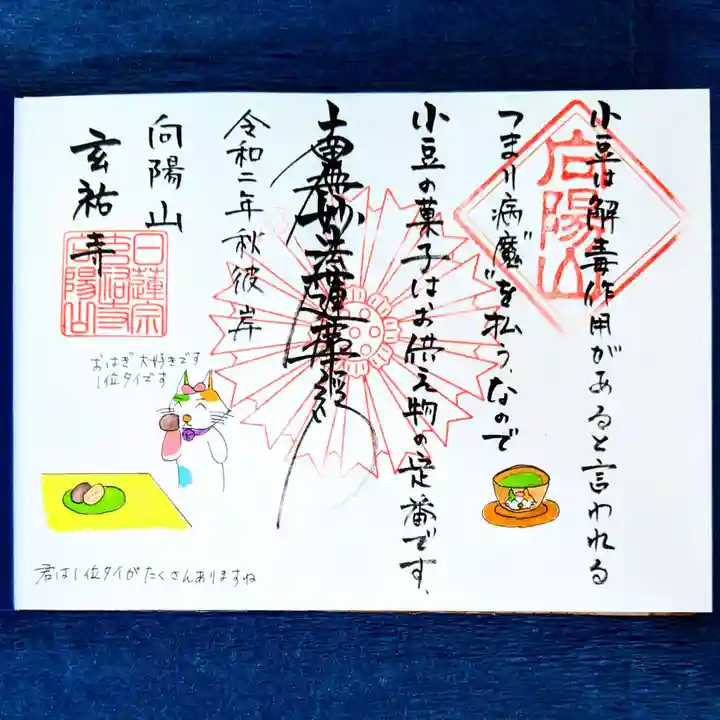 小豆は解毒作用があると言われる
つまり病魔を払う、なので
小豆の菓子はお供え物の定番です、
南無妙法蓮華経
令和二年秋彼岸
向陽山
玄祐寺
向陽山
日蓮宗
玄祐寺
向陽山
おはぎ大好きです
1位タイです
君は1位タイがたくさんありますね